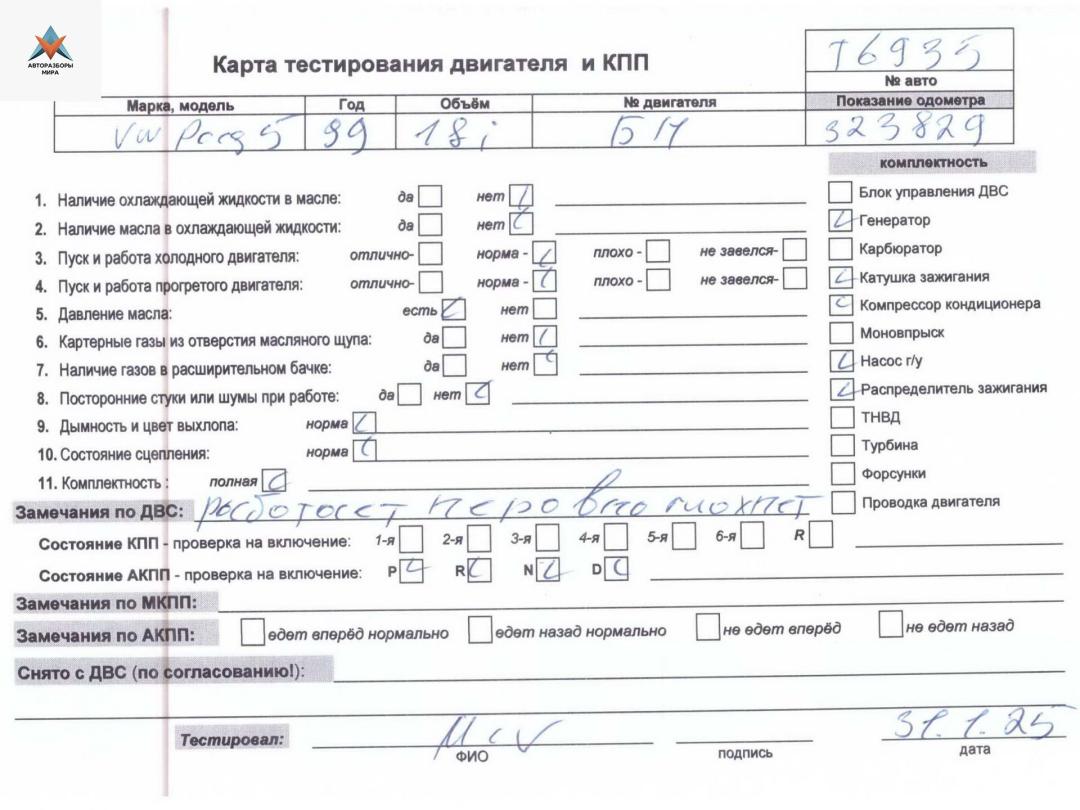 АВТОРАЗБОРЫ
МИРА
Карта тестирования двигателя и КПП
T6935
№ авто
Марка, модель Год Объём № двигателя Показание одометра
VW 99 18i Б/Н 323829
комплектность
1. Наличие охлаждающей жидкости в масле: да нет
2. Наличие масла в охлаждающей жидкости: да нет
3. Пуск и работа холодного двигателя: отлично- норма - плохо - не завелся-
4. Пуск и работа прогретого двигателя: отлично- норма - плохо - не завелся-
5. Давление масла: есть нет
6. Картерные газы из отверстия масляного щупа: да нет
7. Наличие газов в расширительном бачке: да нет
8. Посторонние стуки или шумы при работе: да нет
9. Дымность и цвет выхлопа: норма
10. Состояние сцепления: норма
11. Комплектность : полная
Блок управления ДВС
Генератор
Карбюратор
Катушка зажигания
Компрессор кондиционера
Моновпрыск
Насос г/у
Распределитель зажигания
ТНВД
Турбина
Форсунки
Проводка двигателя
Замечания по ДВС: работает неровно глохнет
Состояние КПП - проверка на включение: 1-я 2-я 3-я 4-я 5-я 6-я R
Состояние АКПП - проверка на включение: P R N D
Замечания по МКПП:
Замечания по АКПП: едет вперёд нормально едет назад нормально не едет вперёд не едет назад
Снято с ДВС (по согласованию!):
Тестировал: 31.1.25
ФИО подпись дата